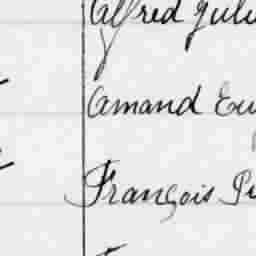 Alfred Jul
Amand Eu
François Pi